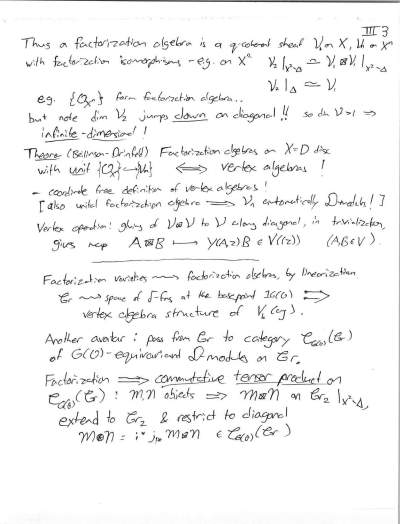 III 3
Thus a factorization algebra is a q-coherent sheaf V₁ on X, Vₙ on Xⁿ
with factorization isomorphisms - e.g. on X² V₂|_{X²-Δ} ≃ V₁⊠V₁|_{X²-Δ}
V₂|_Δ ≃ V₁
e.g. {O_{Xⁿ}} form factorization algebra..
but note dim V₂ jumps down on diagonal!! so dim V>1 ⇒
infinite-dimensional!
Theorem (Beilinson-Drinfeld) Factorization algebras on X=D disc
with unit {O_{Xⁿ}}→{Vₙ} ⟺ vertex algebras!
- coordinate free definition of vertex algebras!
[also unital factorization algebra ⟹ Vₙ automatically D-module!]
Vertex operation: gluing of V⊠V to V along diagonal, in trivialization,
gives map A⊠B ↦ Y(A,z)B ∈ V((z)) (A,B∈V).
Factorization varieties ⇝ factorization algebras, by linearization
Gr ⇝ space of δ-fns at the basepoint 1G(O) ⟹
vertex algebra structure of Vₖ(g).
Another avatar: pass from Gr to category C_{G(O)}(Gr)
of G(O)-equivariant D-modules on Gr.
Factorization ⟹ commutative tensor product on
C_{G(O)}(Gr): M,N objects ⇒ M⊠N on Gr₂|_{X²-Δ},
extend to Gr₂ & restrict to diagonal
M⊗N = i* j_{!*} M⊠N ∈ C_{G(O)}(Gr)